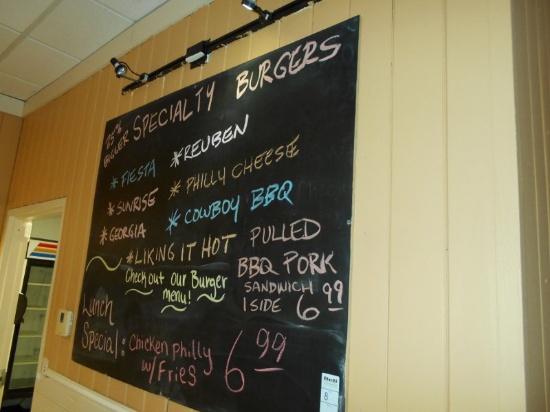 25% BIGGER SPECIALTY BURGERS
* FIESTA
* REUBEN
* SUNRISE
* PHILLY CHEESE
* GEORGIA
* COWBOY BBQ
* LIKING IT HOT
Check out our Burger
menu!
PULLED
BBQ PORK
SANDWICH
1 SIDE 6.99
Lunch
Special: Chicken philly
w/ Fries 6.99
8